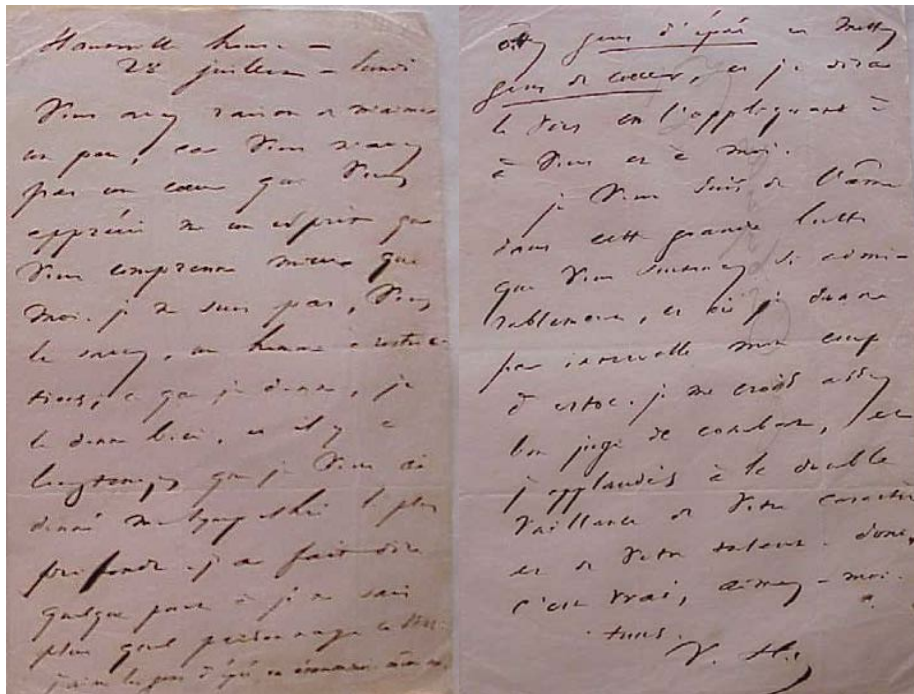 Hauteville house —
28 juillet – lundi
Vous avez raison de m'aimer
un peu, car vous n'avez
pas un cœur qui vous
apprécie ni un esprit qui
vous comprenne mieux que
moi. je ne suis pas, vous
le savez, un homme à restric-
tions; ce que je donne, je
le donne bien, et il y a
longtemps que je vous ai
donné ma sympathie la plus
profonde. j'ai fait dire
quelque part à je ne sais
plus quel personnage ce vers:
j'aime les gens d'épée en
ôtez gens d'épée et mettez
gens de cœur, et je dirai
le vers en l'appliquant à
à vous et à moi.
je vous suis de l'âme
dans cette grande lutte
que vous soutenez si admi-
rablement, et où je donne
par intervalle mon coup
d'estoc. je me crois assez
bon juge de combats, et
j'applaudis à la double
vaillance de votre caractère
et de votre talent. donc,
c'est vrai, aimez-moi.
tuus.
V. H.